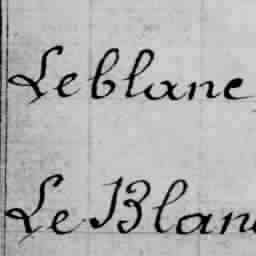 Leblanc
Le Blanc